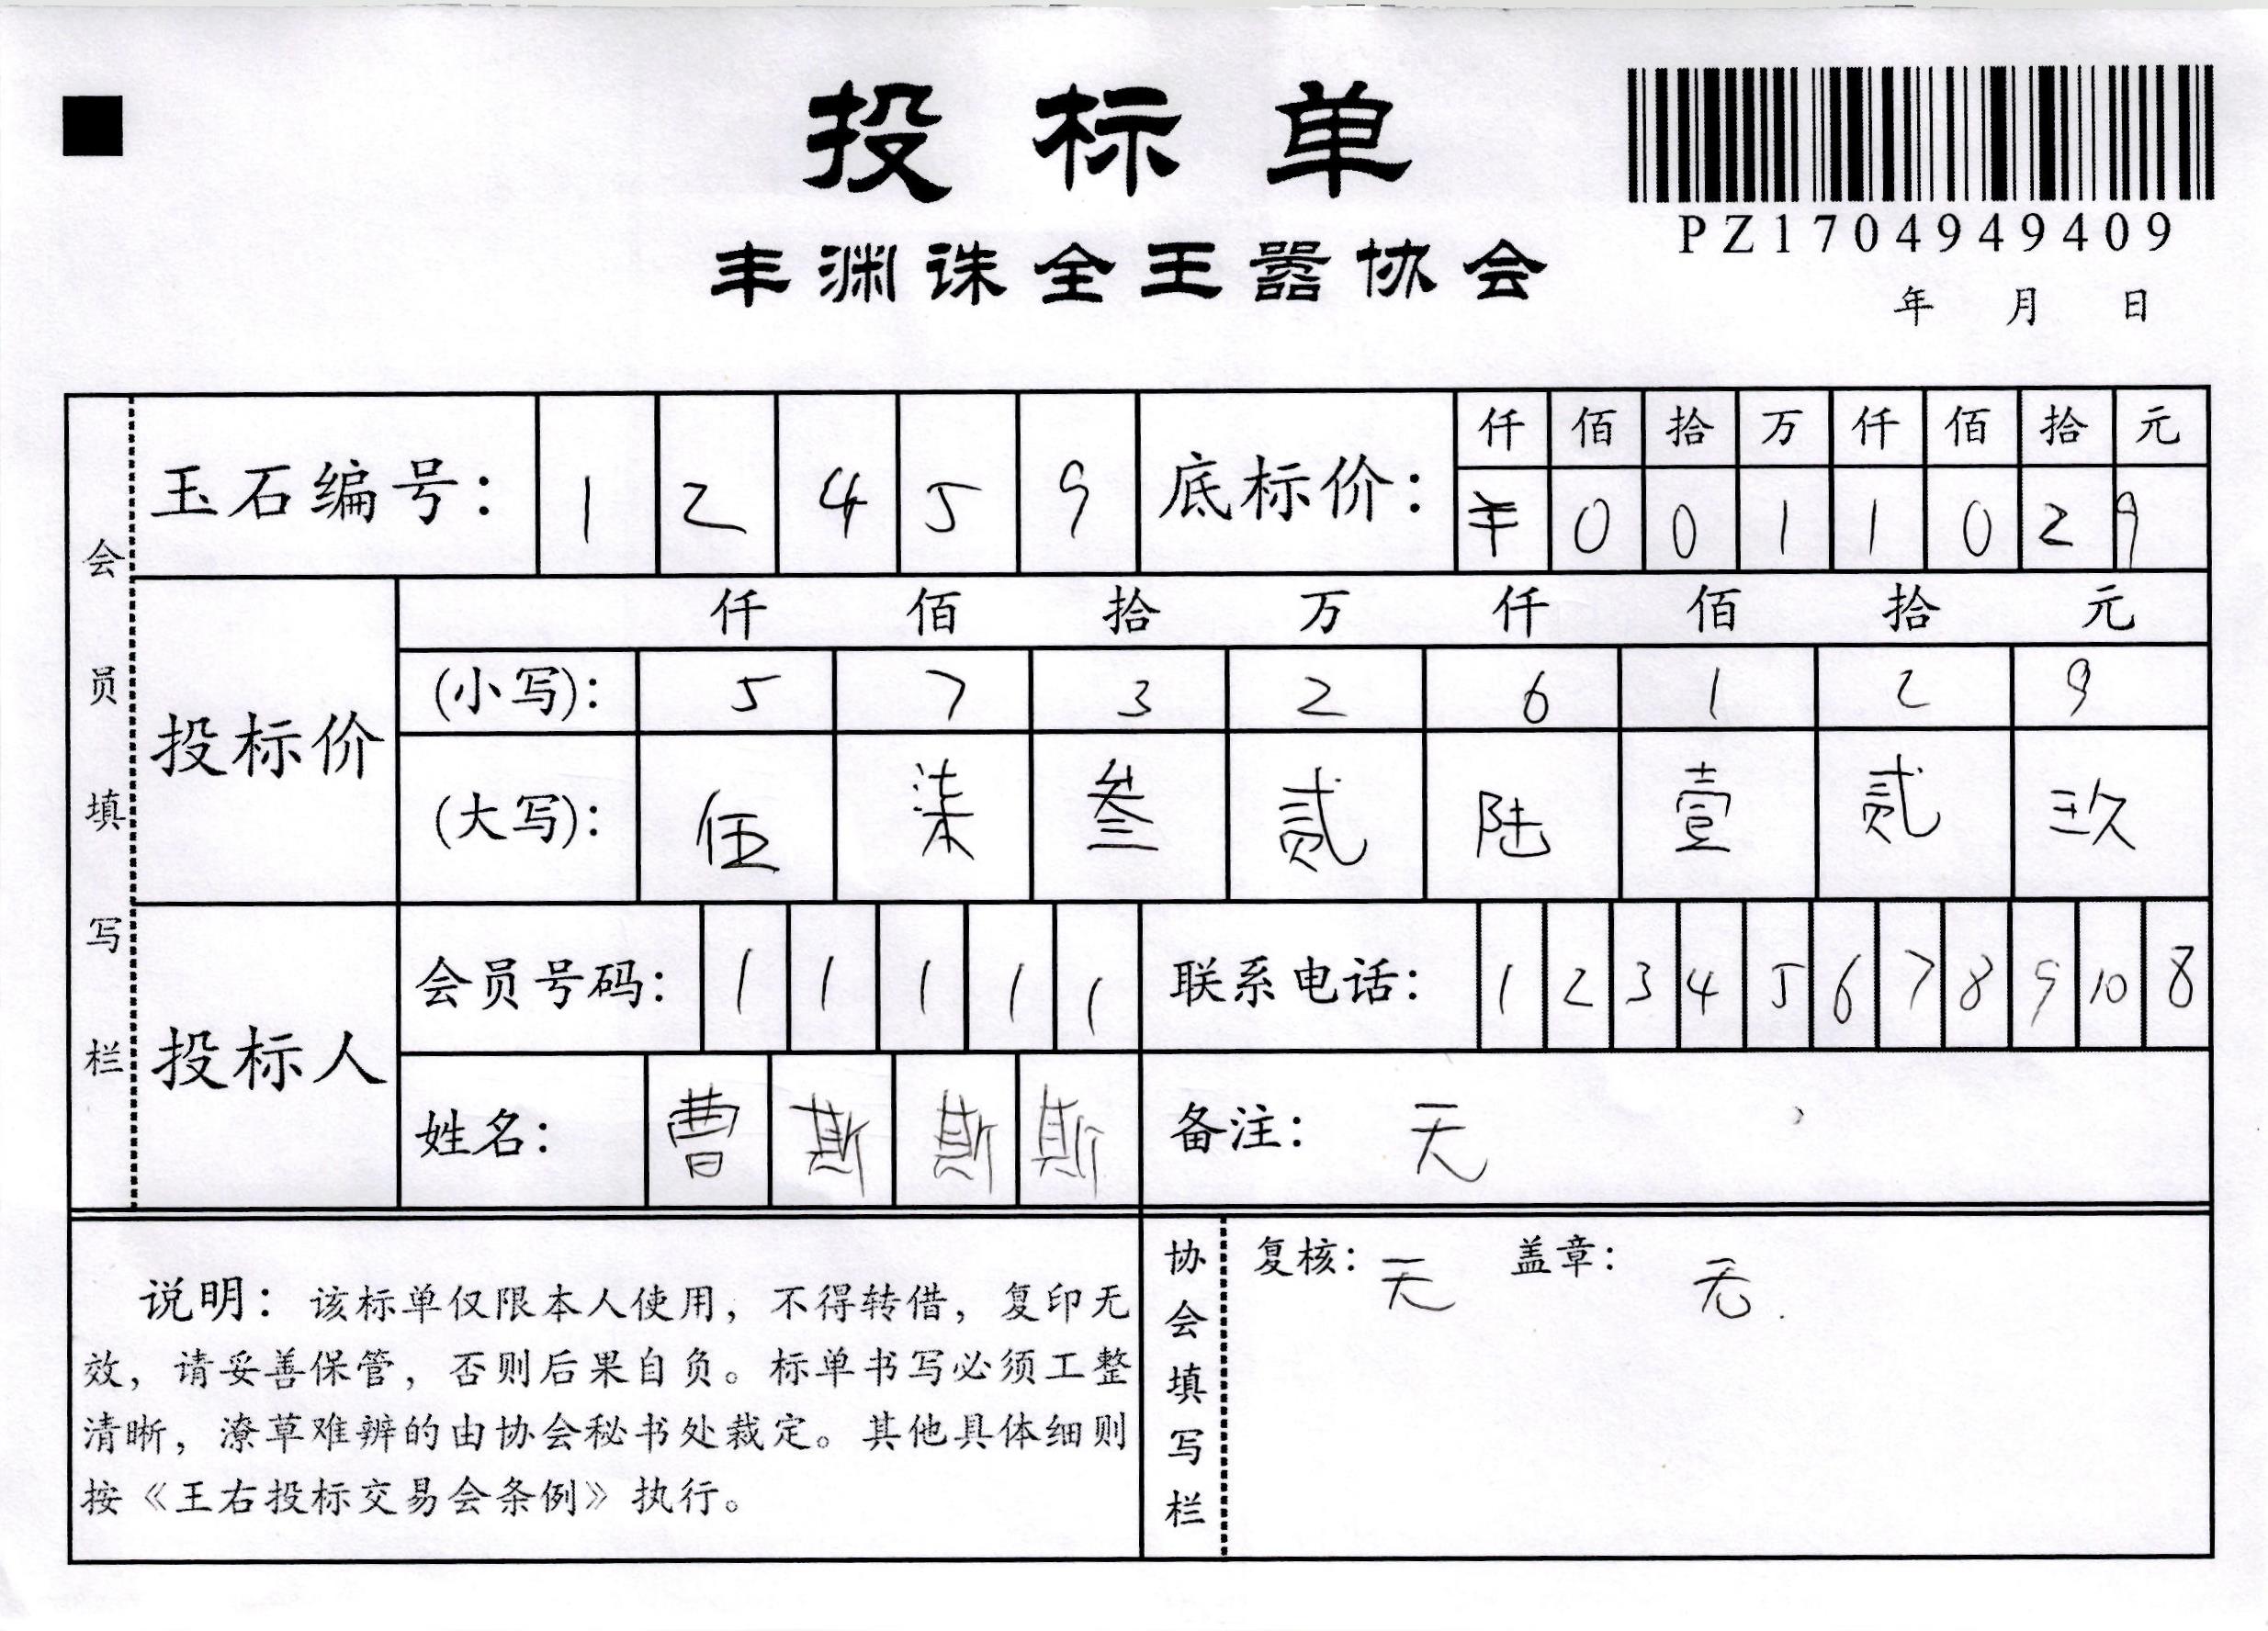 投标单
丰渊诛全王嚣协会
PZ1704949409
年 月 日
会员填写栏
玉石编号： 1 2 4 5 9 底标价： 仟 佰 拾 万 仟 佰 拾 元
¥ 0 0 1 1 0 2 9
投标价
仟 佰 拾 万 仟 佰 拾 元
(小写)： 5 7 3 2 6 1 2 9
(大写)： 伍 柒 叁 贰 陆 壹 贰 玖
投标人
会员号码： 1 1 1 1 1 联系电话： 1 2 3 4 5 6 7 8 9 10 8
姓名： 曹 斯 斯 斯 备注： 无
说明：该标单仅限本人使用，不得转借，复印无
效，请妥善保管，否则后果自负。标单书写必须工整
清晰，潦草难辨的由协会秘书处裁定。其他具体细则
按《王右投标交易会条例》执行。
协会填写栏
复核： 无 盖章： 无.